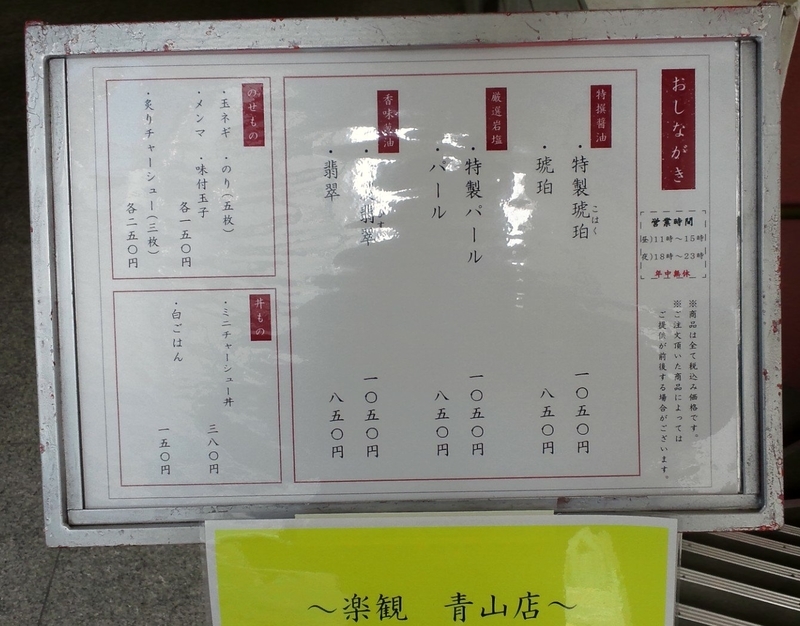 おしながき
営業時間
昼)11時～15時
夜)18時～23時
年中無休
※商品は全て税込み価格です。
※ご注文頂いた商品によっては
ご提供が前後する場合がございます。
特撰醤油
・特製琥珀 一〇五〇円
こはく
・琥珀 八五〇円
厳選岩塩
・特製パール 一〇五〇円
・パール 八五〇円
香味醤油
翡翠 一〇五〇円
・翡翠 八五〇円
のせもの
・玉ネギ ・のり(五枚)
・メンマ ・味付玉子
各一五〇円
・炙りチャーシュー(三枚)
各二五〇円
丼もの
・ミニチャーシュー丼
三八〇円
・白ごはん
一五〇円
～楽観 青山店～